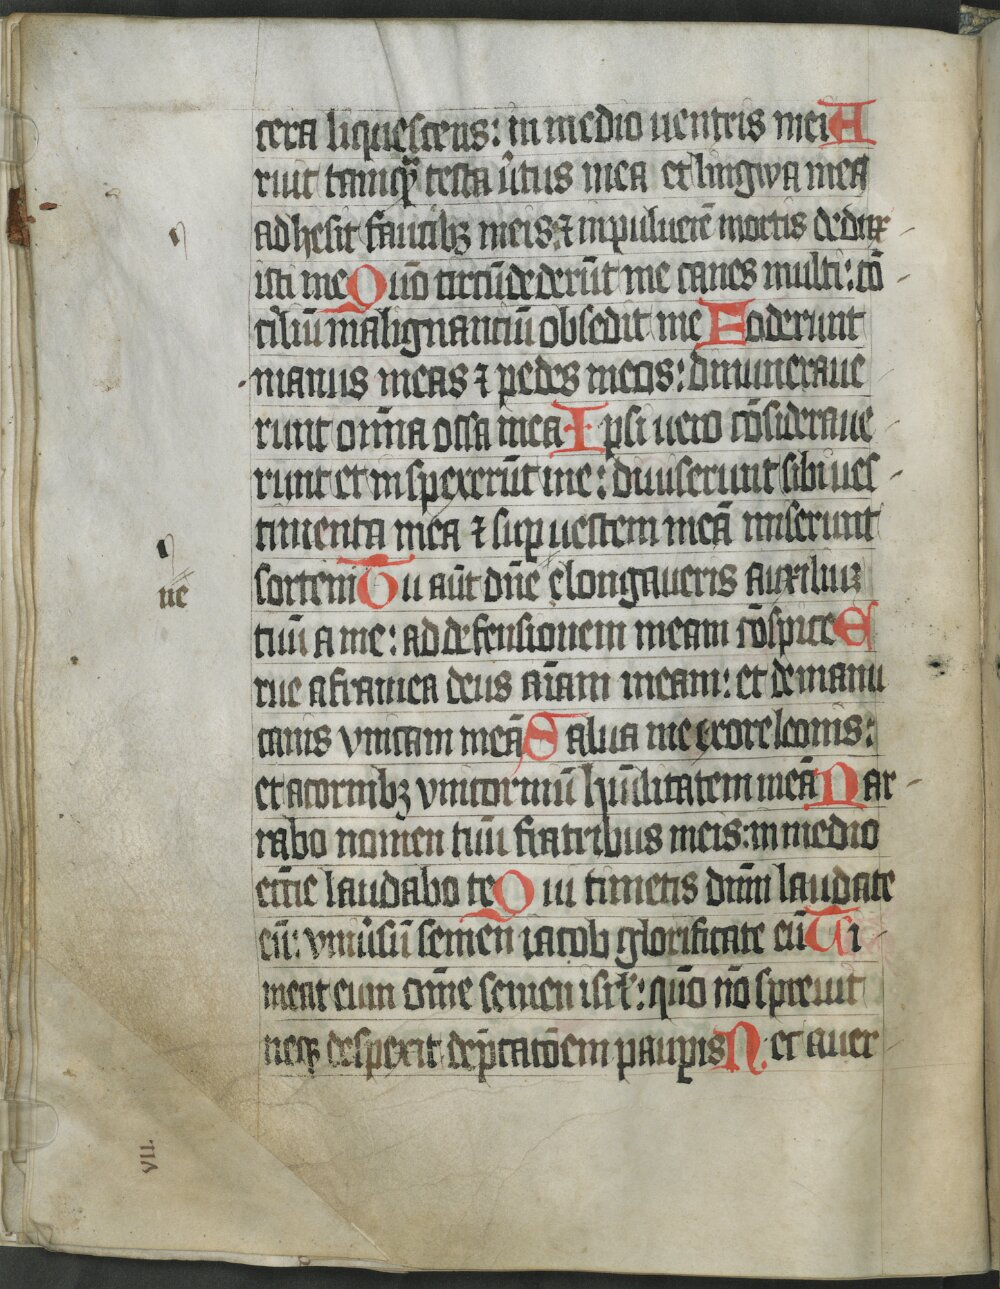 cera liquescens: in medio uentris mei A
ruit tamq̃ testa u̾tus mea et lingwa mea
adhesit faucibꝫ meis: ⁊ in puluerē mortis dedux
isti me Quō circūdederūt me canes multi: cō
ciliū malignantiū obsedit me Foderunt
manus meas ⁊ pedes meos: dinumeraue
runt om̄ia ossa mea Ipsi uero cōsideraue
runt et inspexerūt me: diuiserunt sibi ues
timenta mea ⁊ sup uestem meā miserunt
sortem Tu aūt dn̄e elongaueris auxiliuꝫ
ne
tuū a me: ad defensionem meam cōspice E
rue a framea deus aīam meam: et de manu
canis vnicam meā Salua me ex ore leonis:
et a cornibꝫ vnicorniū hūilitatem meā Nar
rabo nomen tuū fratribus meis: in medio
ecc̄ie laudabo te Qui timetis dn̄m laudate
eū: vniu̾sū semen iacob glorificate eū Ti
meat eum om̄e semen isrl̄: quō nō spreuit
neqꝫ despexit dep̄catōem paupis N et auer
VII.